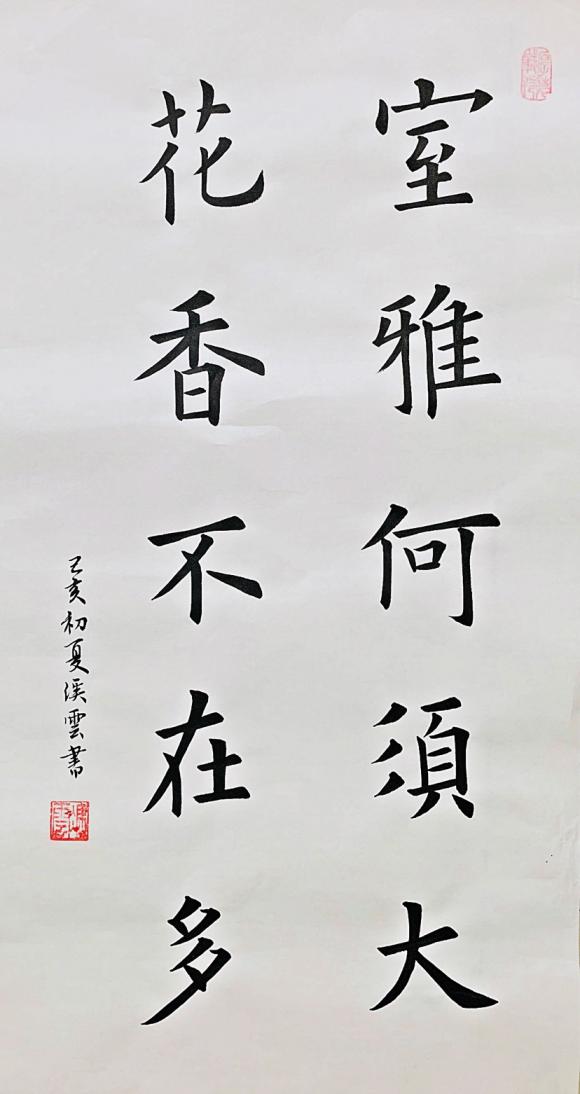 室雅何須大
花香不在多
己亥初夏溪雲書